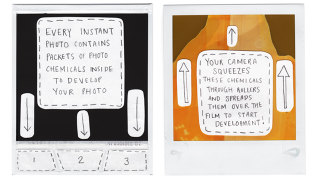 EVERY INSTANT
PHOTO CONTAINS
PACKETS OF PHOTO
CHEMICALS INSIDE
TO DEVELOP
YOUR PHOTO
1 2 3
YOUR CAMERA
SQUEEZES
THESE CHEMICALS
THROUGH ROLLERS
AND SPREADS
THEM OVER THE
FILM TO START
DEVELOPMENT!